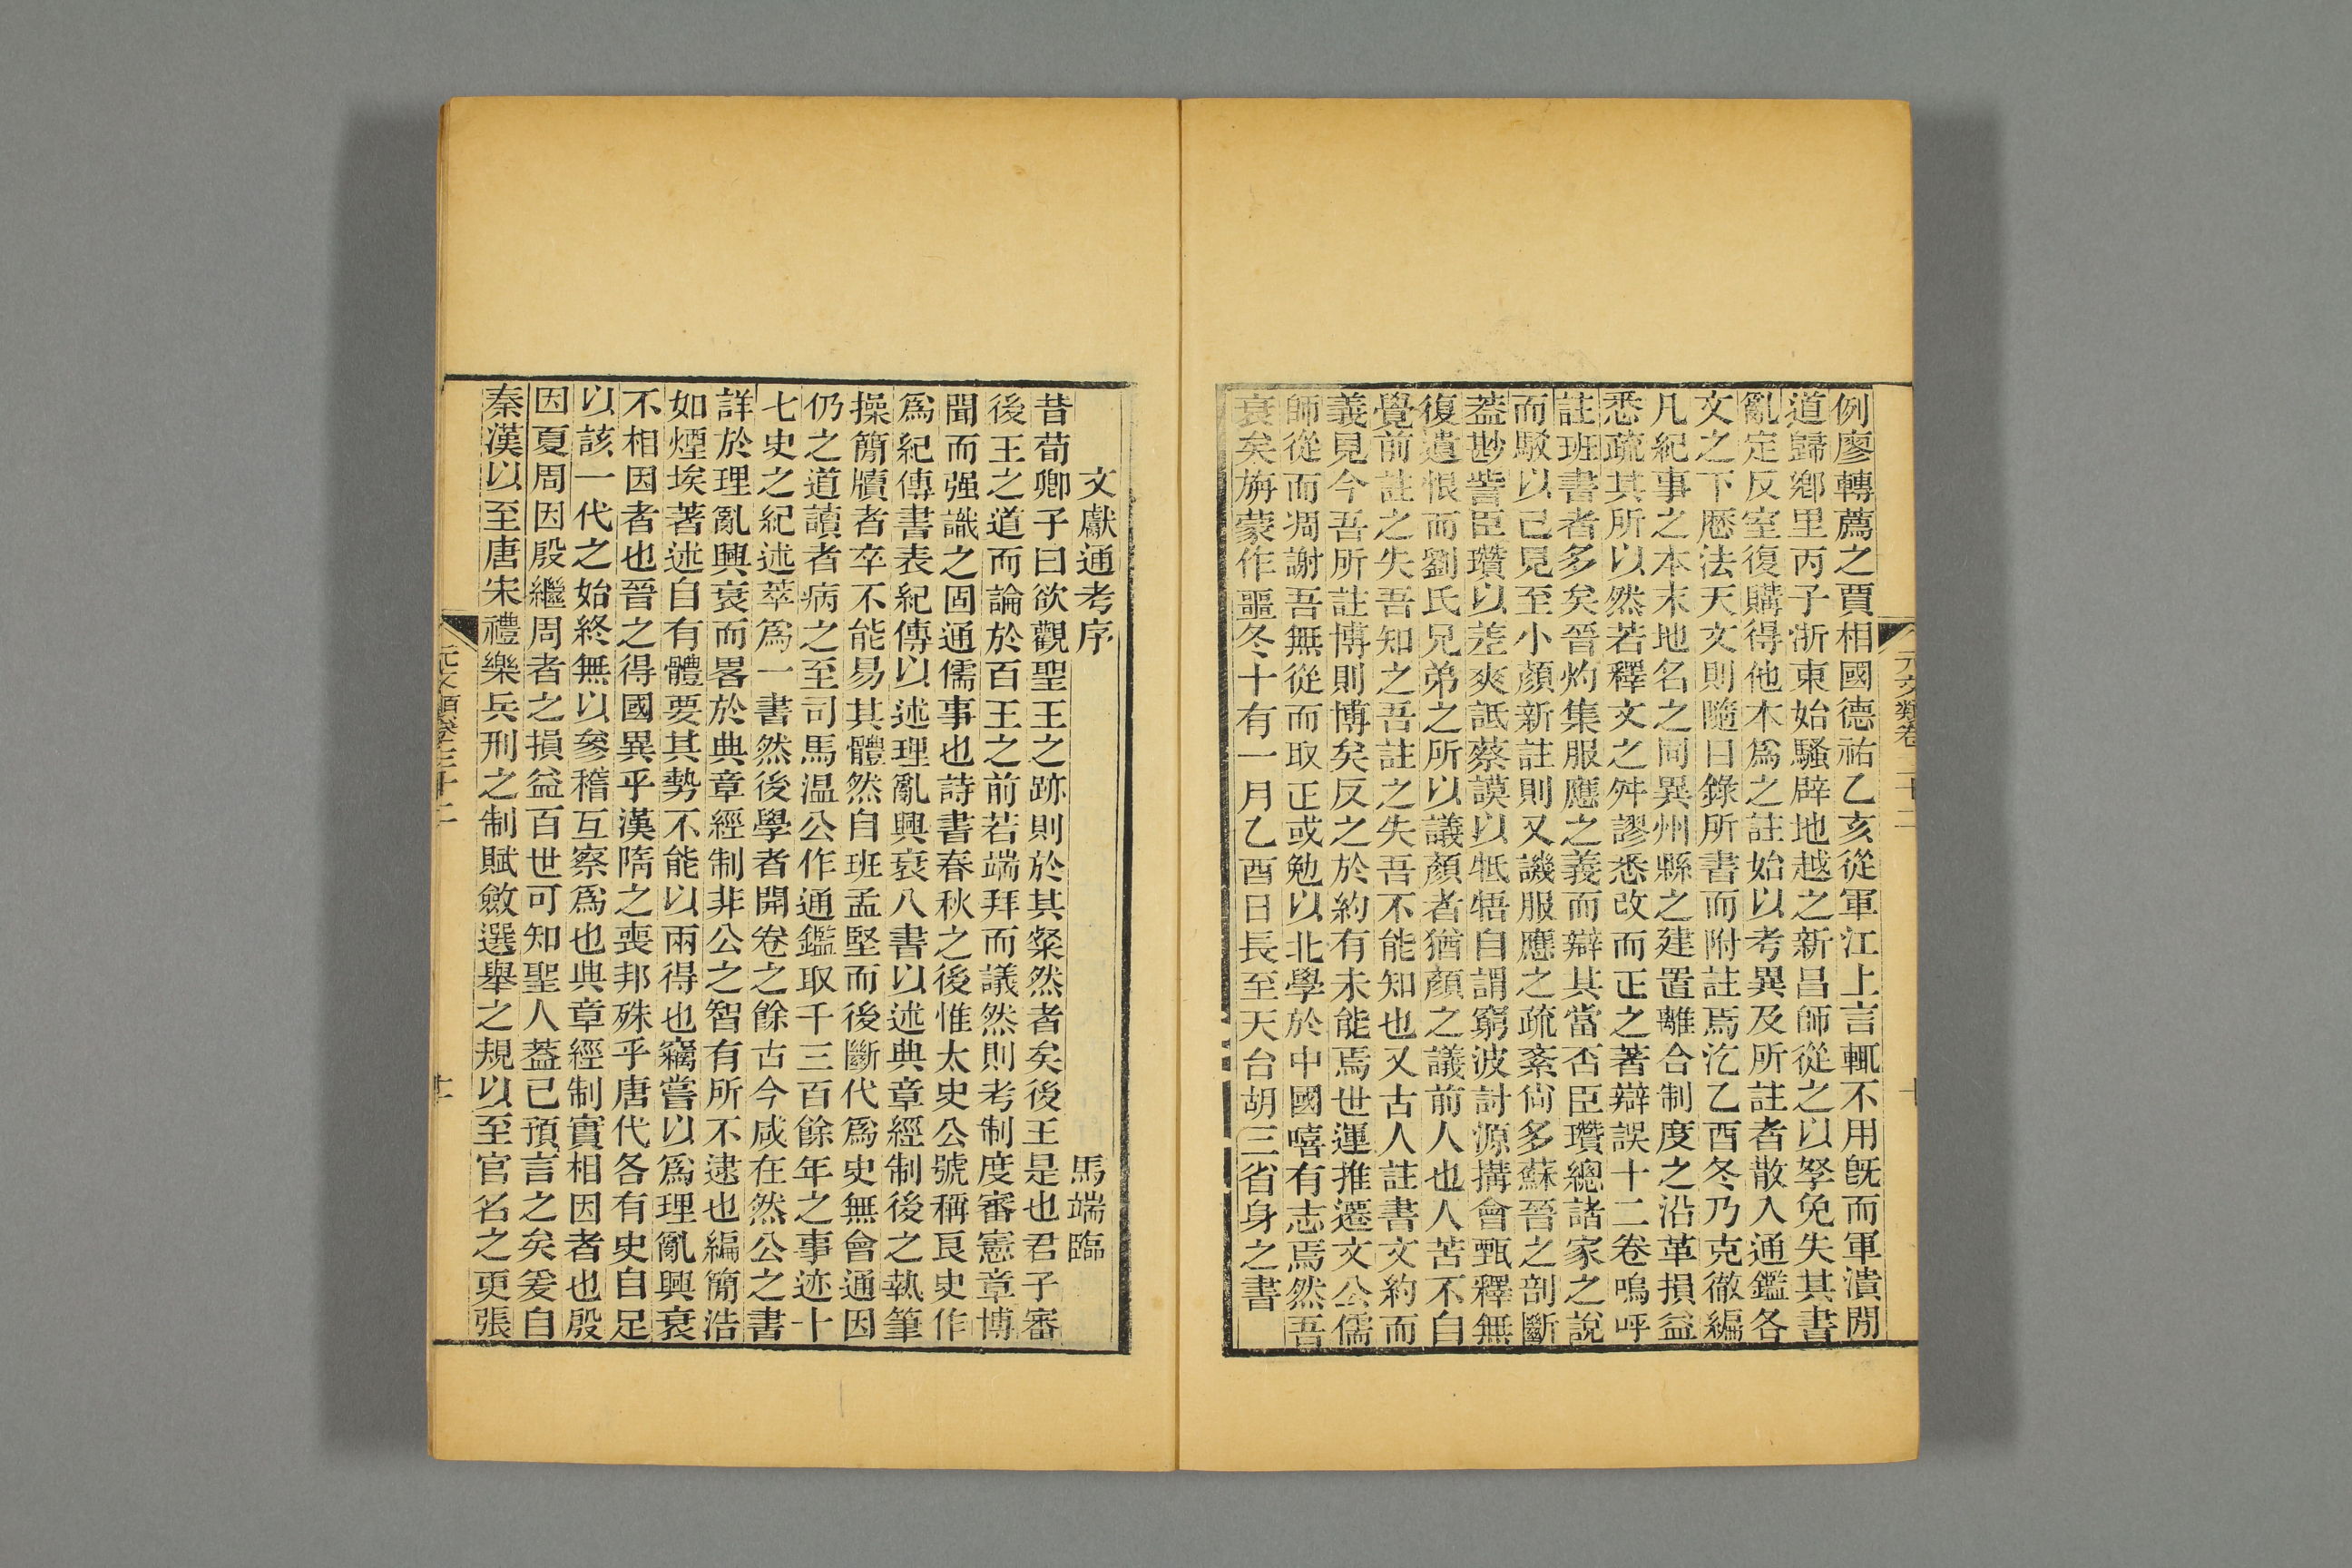 例廖轉薦之賈相國德祐乙亥從軍江上言輒不用旣而軍潰閒
道歸鄉里丙子浙東始騷辟地越之新昌師從之以孥免失其書
亂定反室復購得他本爲之註始以考異及所註者散入通鑑各
文之下厯法天文則隨目錄所書而附註焉汔乙酉冬乃克徹編
凡紀事之本末地名之同異州縣之建置離合制度之沿革損益
悉疏其所以然若釋文之舛謬悉改而正之著辯誤十二卷嗚呼
註班書者多矣晉灼集服應之義而辯其當否臣瓚總諸家之說
而駁以己見至小顏新註則又譏服應之疏紊尙多蘇晉之剖斷
蓋尠訾臣瓚以差爽詆蔡謨以牴牾自謂窮波討源搆會甄釋無
復遺恨而劉氏兄弟之所以議顏者猶顏之議前人也人苦不自
覺前註之失吾知之吾註之失吾不能知也又古人註書文約而
義見今吾所註博則博矣反之於約有未能焉世運推遷文公儒
師從而凋謝吾無從而取正或勉以北學於中國嘻有志焉然吾
衰矣旃蒙作噩冬十有一月乙酉日長至天台胡三省身之書
文獻通考序 馬端臨
昔荀卿子曰欲觀聖王之跡則於其粲然者矣後王是也君子審
後王之道而論於百王之前若端拜而議然則考制度審憲章博
聞而强識之固通儒事也詩書春秋之後惟太史公號稱良史作
爲紀傳書表紀傳以述理亂興衰八書以述典章經制後之執筆
操簡牘者卒不能易其體然自班孟堅而後斷代爲史無會通因
仍之道讀者病之至司馬温公作通鑑取千三百餘年之事迹十
七史之紀述萃爲一書然後學者開卷之餘古今咸在然公之書
詳於理亂興衰而畧於典章經制非公之智有所不逮也編簡浩
如煙埃著述自有體要其勢不能以兩得也竊嘗以爲理亂興衰
不相因者也晉之得國異乎漢隋之喪邦殊乎唐代各有史自足
以該一代之始終無以參稽互察爲也典章經制實相因者也殷
因夏周因殷繼周者之損益百世可知聖人蓋已預言之矣爰自
秦漢以至唐宋禮樂兵刑之制賦斂選舉之規以至官名之更張
元文類卷三十二